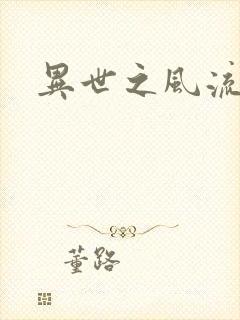 異世之風流
董路